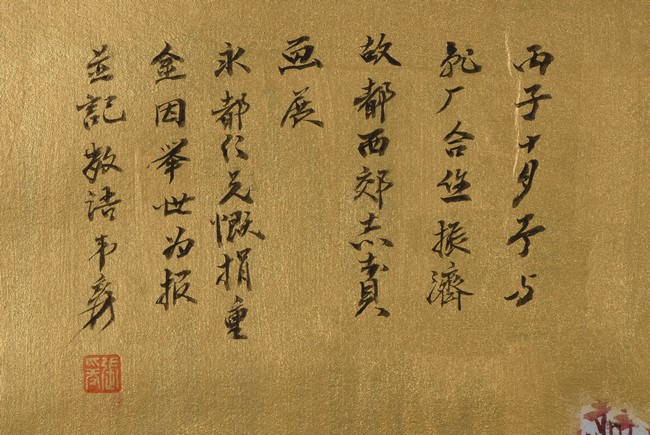 丙子十月予与
非厂合作振濟
故都西郊赤貧
画展
永都仁兄慨捐重
金因举此为报
並記数語弟爰